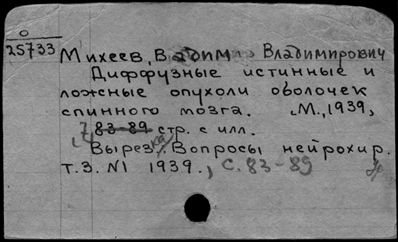 О
25733
Михеев, Вадим Владимирович
Диффузные истинные и
ложные опухоли оболочек
спинного мозга. М., 1939,
7 83-89 стр. с илл.
Вырезка. Вопросы нейрохир.
т.3. N1 1939., С. 83-89